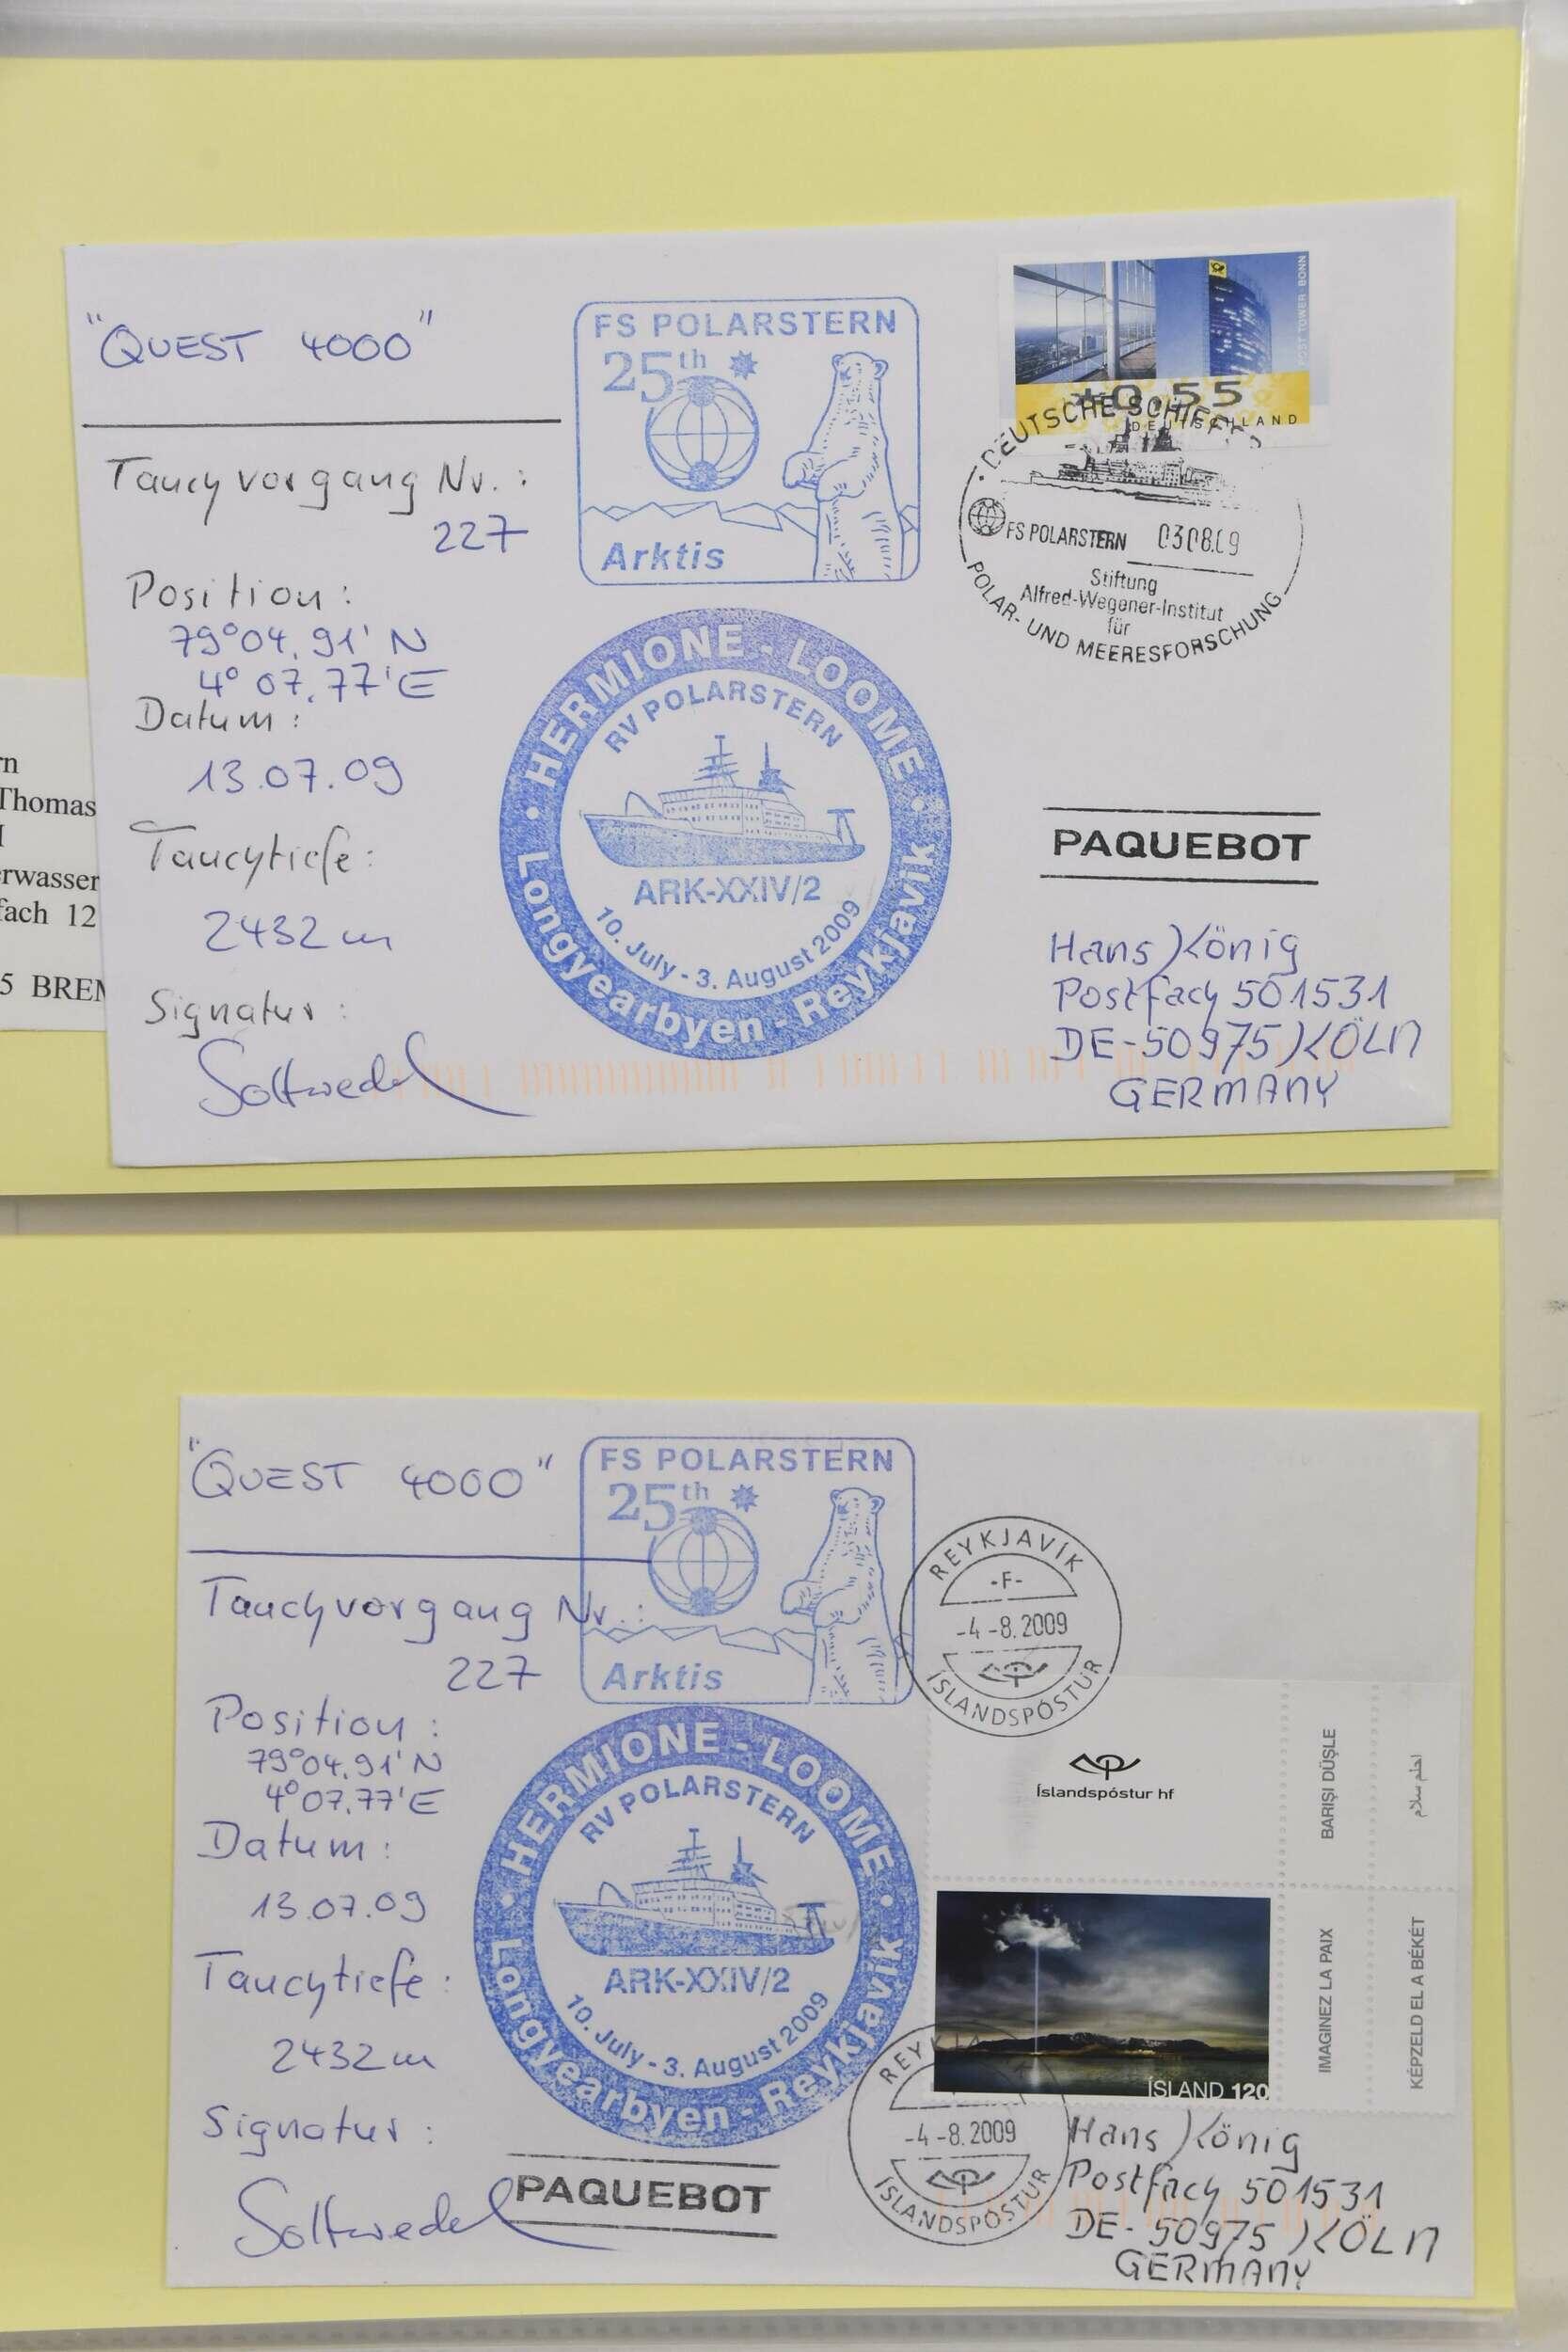 "QUEST 4000"
Tauchvorgang Nr.:
227
Position:
79°04,91' N
4° 07,77' E
Datum:
13.07.09
Tauchtiefe:
2432 m
Signatur:
Soltwedel
FS POLARSTERN
25th
Arktis
HERMIONE - LOOME
RV POLARSTERN
ARK-XXIV/2
10. July - 3. August 2009
Longyearbyen - Reykjavik
POST TOWER BONN
0,55
DEUTSCHLAND
DEUTSCHE SCHIFFSP
FS POLARSTERN 03.08.09
Stiftung
Alfred-Wegener-Institut
für
POLAR- UND MEERESFORSCHUNG
PAQUEBOT
Hans König
Postfach 501531
DE-50975 KÖLN
GERMANY
Thomas
rwasser
fach 12
5 BREM
"QUEST 4000"
Tauchvorgang Nr.:
227
Position:
79°04,91' N
4°07,77' E
Datum:
13.07.09
Tauchtiefe:
2432 m
Signatur:
Soltwedel
FS POLARSTERN
25th
Arktis
HERMIONE - LOOME
RV POLARSTERN
ARK-XXIV/2
10. July - 3. August 2009
Longyearbyen - Reykjavik
PAQUEBOT
REYKJAVÍK
-F-
-4-8.2009
ÍSLANDSPÓSTUR
Íslandspóstur hf
BARIŞI DÜŞLE
احلم سلام
IMAGINEZ LA PAIX
KÉPZELD EL A BÉKÉT
ÍSLAND 120
REYKJAVÍK
-4-8.2009
ÍSLANDSPÓSTUR
Hans König
Postfach 501531
DE-50975 KÖLN
GERMANY